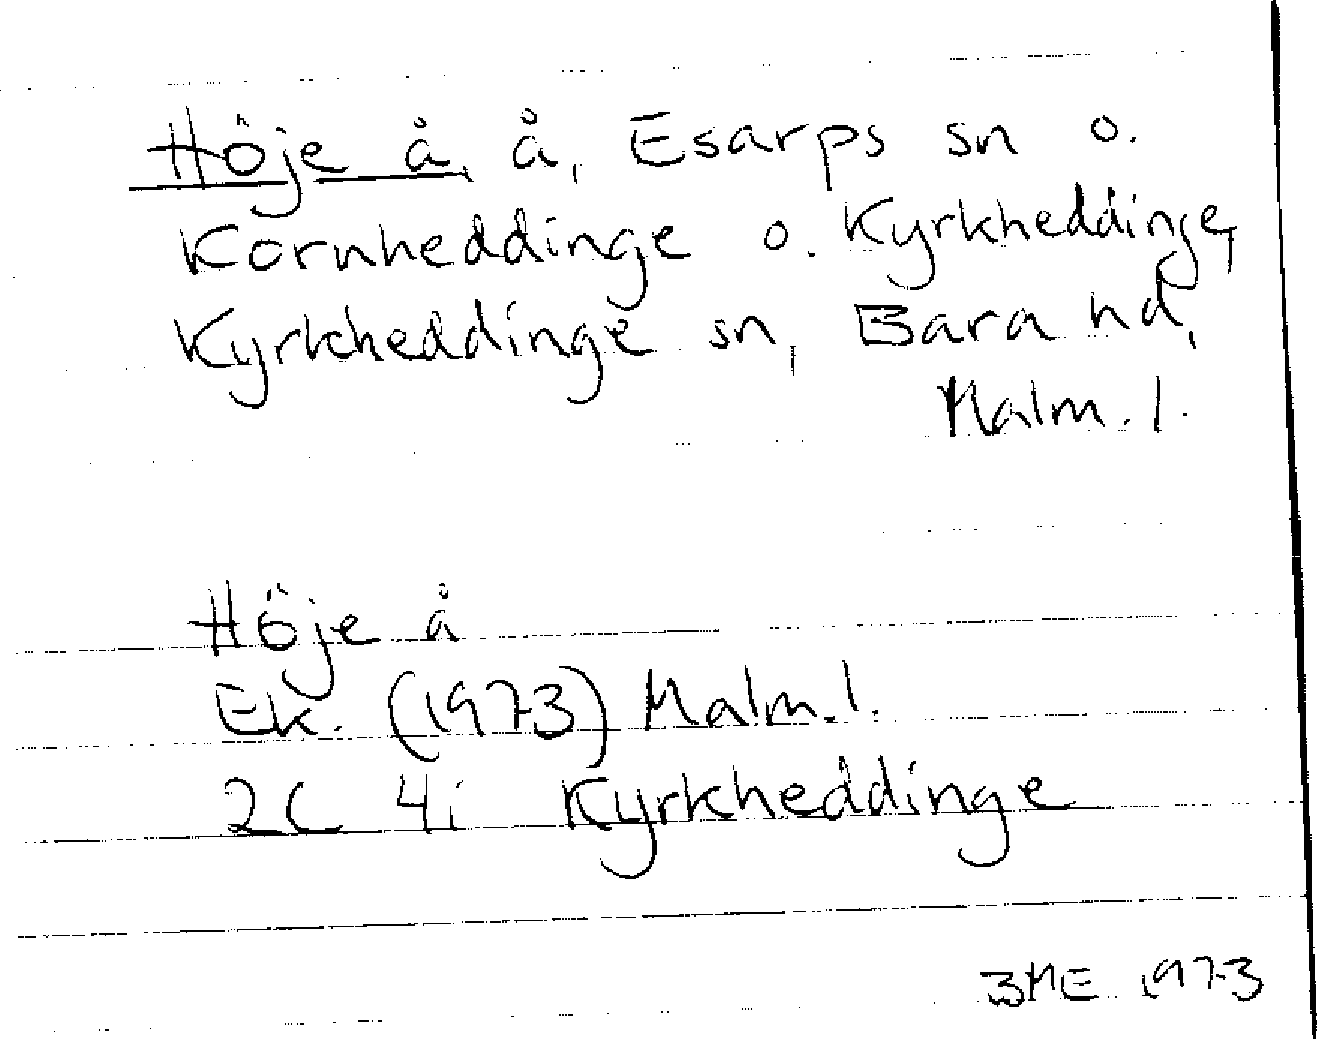 Höje å, å, Esarps sn o.
Kornheddinge o. Kyrkheddinge,
Kyrkheddinge sn, Bara hd,
Malm. l.
Höje å
Ek. (1973) Malm. l.
2C 4i Kyrkheddinge
BME 1973